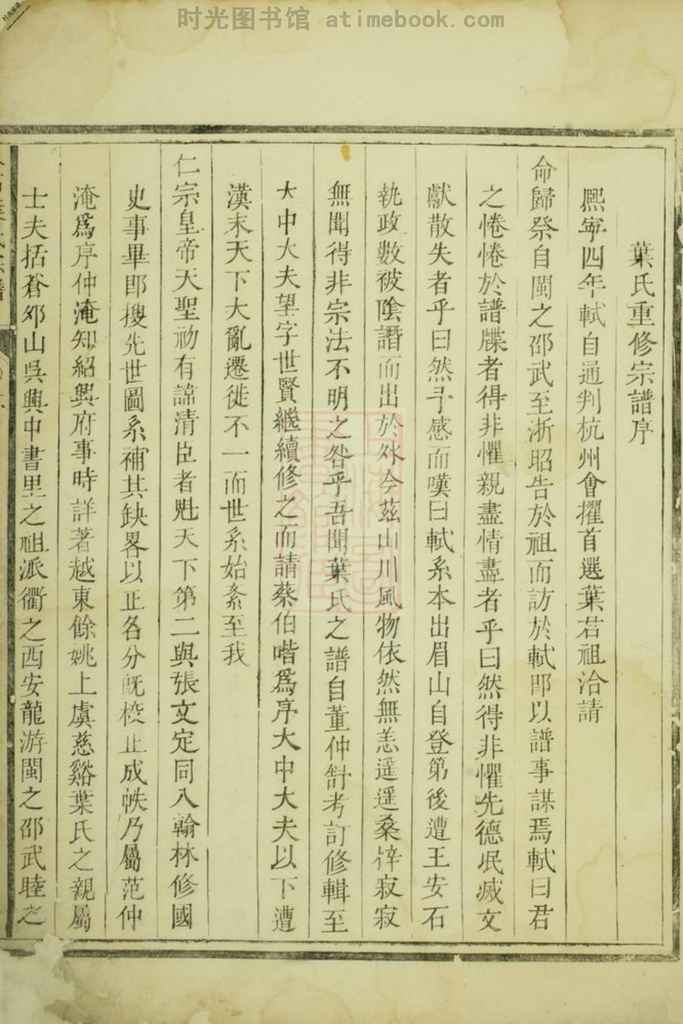 时光图书馆 atimebook.com
葉氏重修宗譜序
熙寧四年軾自通判杭州會擢首選葉君祖洽請
命歸祭自閩之邵武至浙昭告於祖而訪於軾即以譜事謀焉軾曰君
之惓惓於譜牒者得非懼親盡情盡者乎曰然得非懼先德泯滅文
獻散失者乎曰然予感而嘆曰軾系本出眉山自登第後遭王安石
執政數被陰譖而出於外今茲山川風物依然無恙遥遥桑梓寂寂
無聞得非宗法不明之咎乎吾聞葉氏之譜自董仲舒考訂修輯至
大中大夫望字世賢繼續修之而請蔡伯喈爲序大中大夫以下遭
漢末天下大亂遷徙不一而世系始紊至我
仁宗皇帝天聖初有諱清臣者魁天下第二與張文定同入翰林修國
史事畢即搜先世圖系補其缺畧以正各分旣校正成帙乃屬范仲
淹爲序仲淹知紹興府事時詳著越東餘姚上虞慈谿葉氏之親屬
士夫括蒼夘山吳興中書里之祖派衢之西安龍游閩之邵武睦之